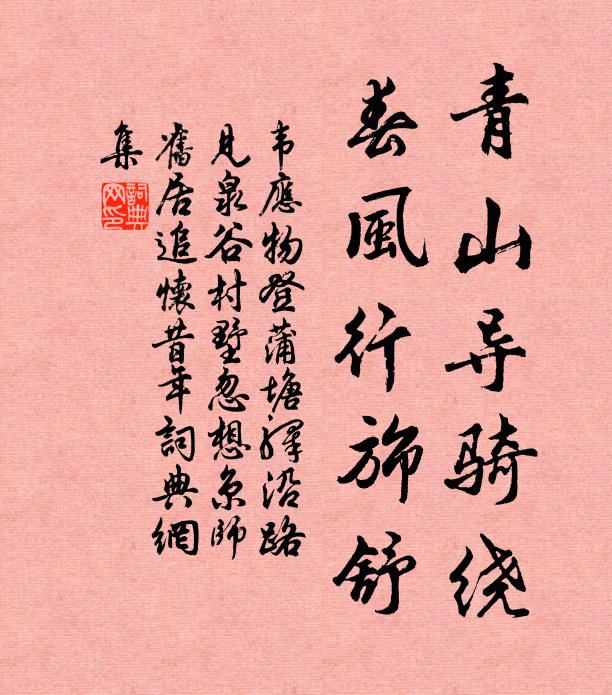 青山导骑绕
春風行旆舒
韦應物登蒲塘驛沿路
見泉谷村墅忽想京師
舊居追懷昔年詞典網
集
詞典网印